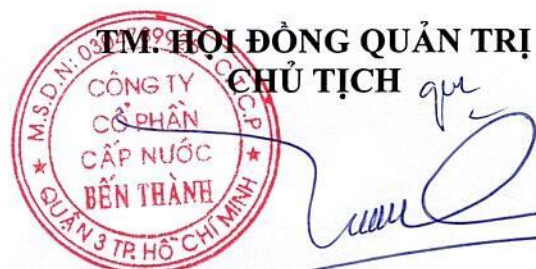 TM. HỘI ĐỒNG QUẢN TRỊ
CHỦ TỊCH
CÔNG TY
CỔ PHẦN
CẤP NƯỚC
BẾN THÀNH
QUẬN 3 TP. HỒ CHÍ MINH